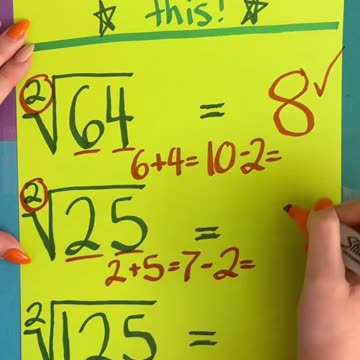 this!
²√64 = 8 ✓
6+4=10-2=
²√25 =
2+5=7-2=
²√125 =